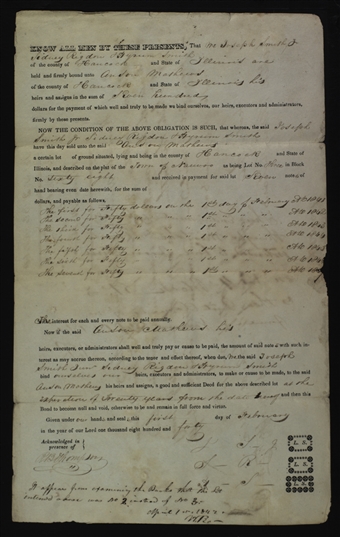 KNOW ALL MEN BY THESE PRESENTS, That we Joseph Smith Jr
Sidney Rigdon & Hyrum Smith
of the county of Hancock and State of Illinois are
held and firmly bound unto Anson Mathews
of the county of Hancock and State of Illinois his
heirs and assigns in the sum of Seven Hundred
dollars for the payment of which well and truly to be made we bind ourselves, our heirs, executors and administrators,
firmly by these presents.
NOW THE CONDITION OF THE ABOVE OBLIGATION IS SUCH, that whereas, the said Joseph
Smith Jr Sidney Rigdon & Hyrum Smith
have this day sold unto the said Anson Mathews
a certain lot of ground situated, lying and being in the county of Hancock and State of
Illinois, and described on the plot of the Town of Nauvoo as being Lot No. in Block
No. Sixty eight and received a payment for said lot Seven notes of
hand bearing even date herewith, for the sum of
dollars, and payable as follows,
The first for Fifty dollars on the 1st day of February
The second for Fifty
The third for Fifty
The fourth for Fifty
The fifth for Fifty
The sixth for Fifty
The seventh for Fifty
The interest for each and every note to be paid annually.
Now if the said Anson Mathews his
heirs, executors, or administrators shall well and truly pay or cause to be paid, the amount of said notes with such in-
terest as may accrue thereon, according to the tenor and effect thereof, when due, the said Joseph
Smith Junr Sidney Rigdon & Hyrum Smith
bind ourselves our heirs, executors and administrators, to make or cause to be made, to the said
Anson Mathews his heirs and assigns, a good and sufficient Deed for the above described lot at the
expiration of Twenty years from the date and then this
Bond to become null and void, otherwise to be and remain in full force and virtue.
Given under our hands and seals, this first day of February
in the year of our Lord one thousand eight hundred and forty
Acknowledged in
presence of
L. S.
L. S.
L. S.
It appears from examining the Books that the
intended was No 2 instead of No